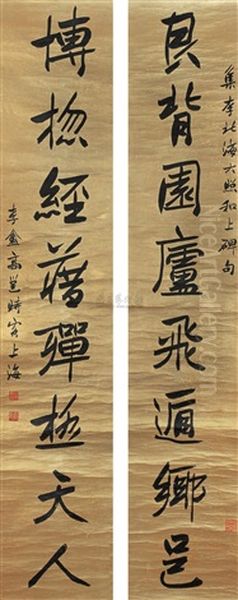 貝背園廬飛遁鄉邑
集李北海六照和上碑句
博揔經藉殫極天人
李金高邕時客上海